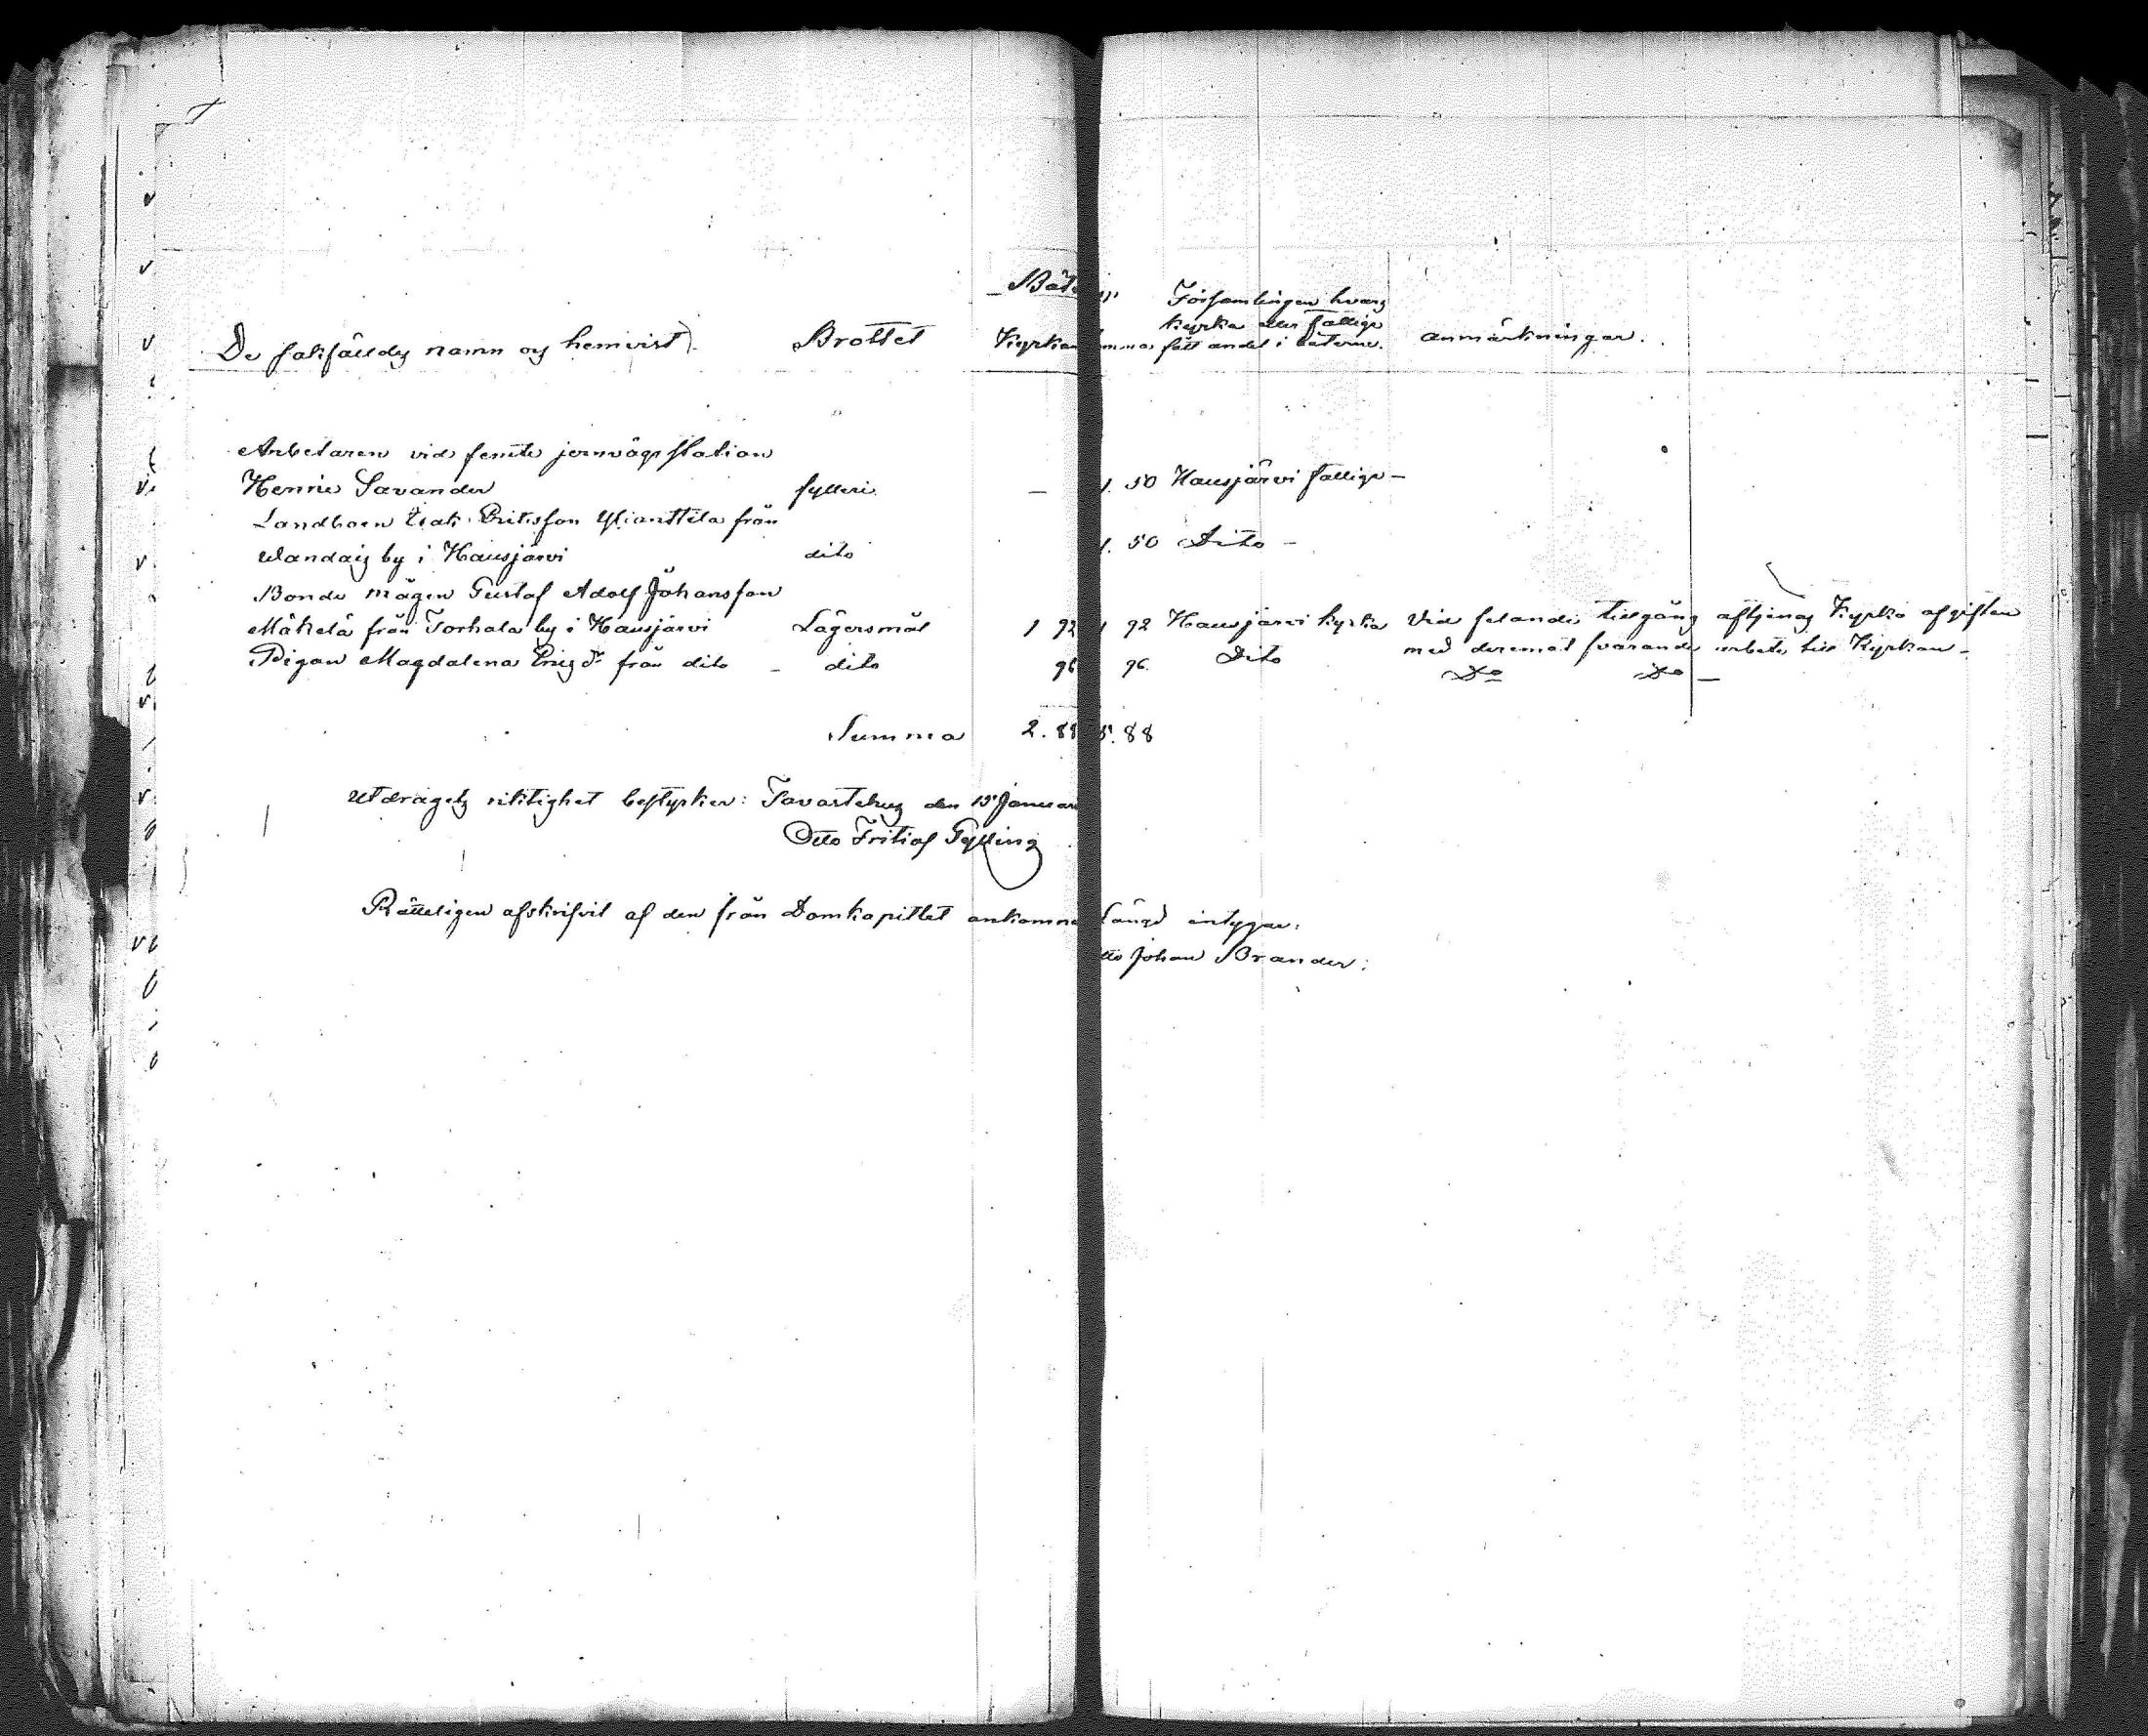 Böter
De sakfälldes namn och hemvist. Brottet Kyrkan Summa Församlingen hvars
kyrka eller fattige
fått andel i böterne. Anmärkningar.
Arbetaren vid femte jernvägs station
Henric Savander fylleri. — 1. 50 Hausjärvi fattige —
Landboen Isak Ericsson Ylianttila från
by i Hausjärvi dito 1. 50 Dito —
Bonde mågen Gustaf Adolf Johansson
Mäkelä från Torhola by i Hausjärvi Lägersmål 1 92 1 92 Hausjärvi kyrka Vid felande tillgång aftjenas Kyrko afgiften
med deremot svarande arbete till Kyrkan —
Pigan Magdalena från dito — dito 96 96. Dito Do Do —
Summa 2. 88 5. 88
Utdragets riktighet bestyrker: Tavastehus den 15 Januari
Otto Fritiof Gylling
Rätteligen afskrifvit af den från Domkapitlet ankomne Längd intygar:
Otto Johan Brander: